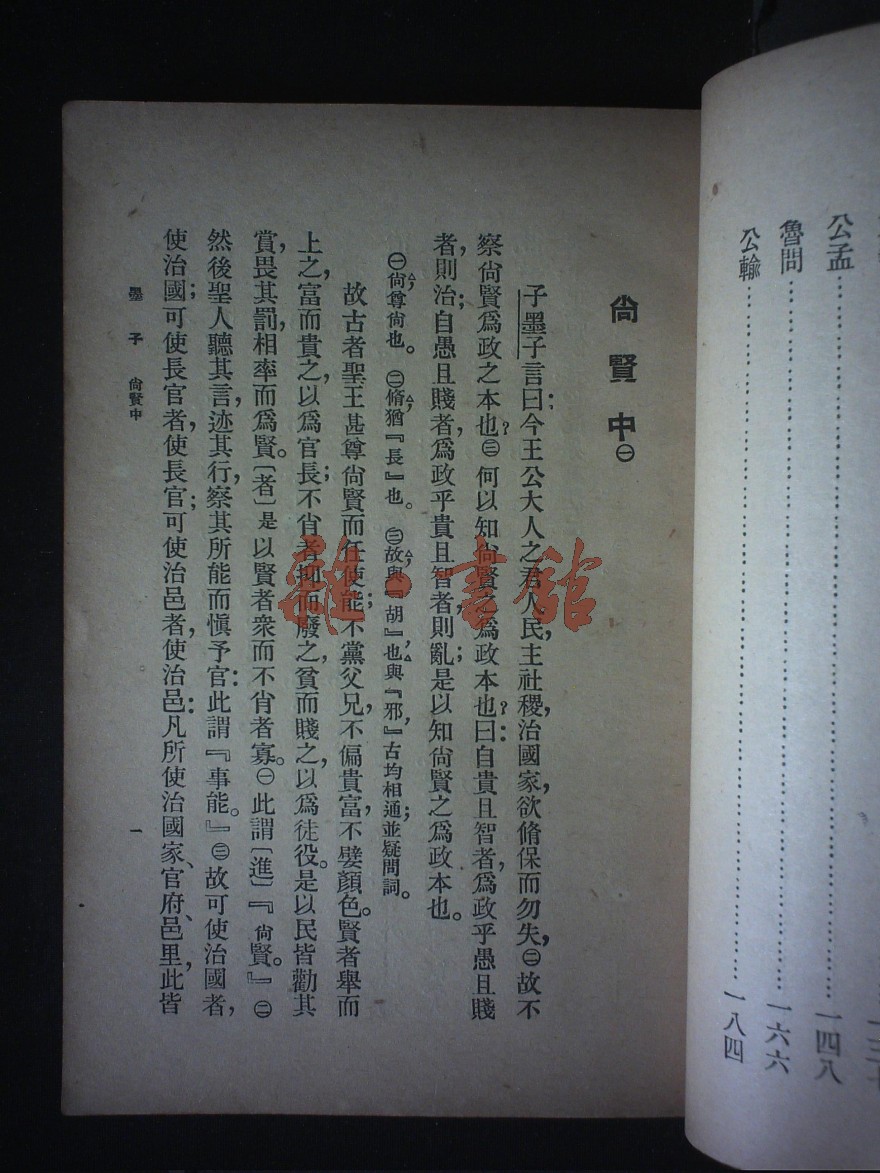 公孟……………………一四八
魯問……………………一六六
公輸……………………一八四
尙賢中㊀
子墨子言曰：今王公大人之君人民，主社稷，治國家，欲脩保而勿失，㊁故不
察尙賢爲政之本也？㊂何以知尙賢之爲政本也？曰：自貴且智者，爲政乎愚且賤
者，則治；自愚且賤者，爲政乎貴且智者，則亂；是以知尙賢之爲政本也。
㊀尙，尊尙也。㊁脩，猶『長』也。㊂故，與『胡』也，與『邪』，古均相通；並疑問詞。
故古者聖王甚尊尙賢而任使能；不黨父兄，不偏貴富，不嬖顏色。賢者舉而
上之，富而貴之，以爲官長；不肖者抑而廢之，貧而賤之，以爲徒役。是以民皆勸其
賞，畏其罰，相率而爲賢。〔者〕是以賢者衆而不肖者寡。㊀此謂〔進〕『尙賢。』㊁
然後聖人聽其言，迹其行，察其所能而愼予官：此謂『事能。』㊂故可使治國者，
使治國；可使長官者，使長官；可使治邑者，使治邑：凡所使治國家、官府、邑里，此皆
墨子 尙賢中 一
雜·書館